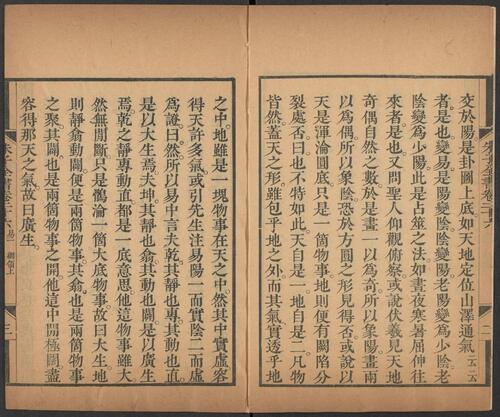 交於陽是卦圖上底如天地定位山澤通氣云云
者是也變易是陽變陰陰變陽老陽變為少陰老
陰變為少陽此是占筮之法如晝夜寒暑屈伸往
來者是也又問聖人仰觀俯察或說伏羲見天地
奇偶自然之數於是畫一以為奇所以象陽畫兩
以為偶所以象陰恐於方圓之形見得否或說以
天是渾淪圓底只是一箇物事地則便有闕陷分
裂處否曰也不特如此天自是一地自是二凡物
皆然蓋天之形雖包乎地之外而其氣實透乎地
二
之中地雖是一塊物事在天之中然其中實虛容
得天許多氣或引先生注易陽一而實陰二而虛
為證曰然所以易中言夫乾其靜也專其動也直
是以大生焉夫坤其靜也翕其動也闢是以廣生
焉乾之靜專動直都是一底意思他這物事雖大
然無間斷只是鶻淪一箇大底物事故曰大生地
則靜翕動闢便是兩箇物事其翕也是兩箇物事
之聚其闢也是兩箇物事之開他這中間極闊盡
容得那天之氣故曰廣生
三